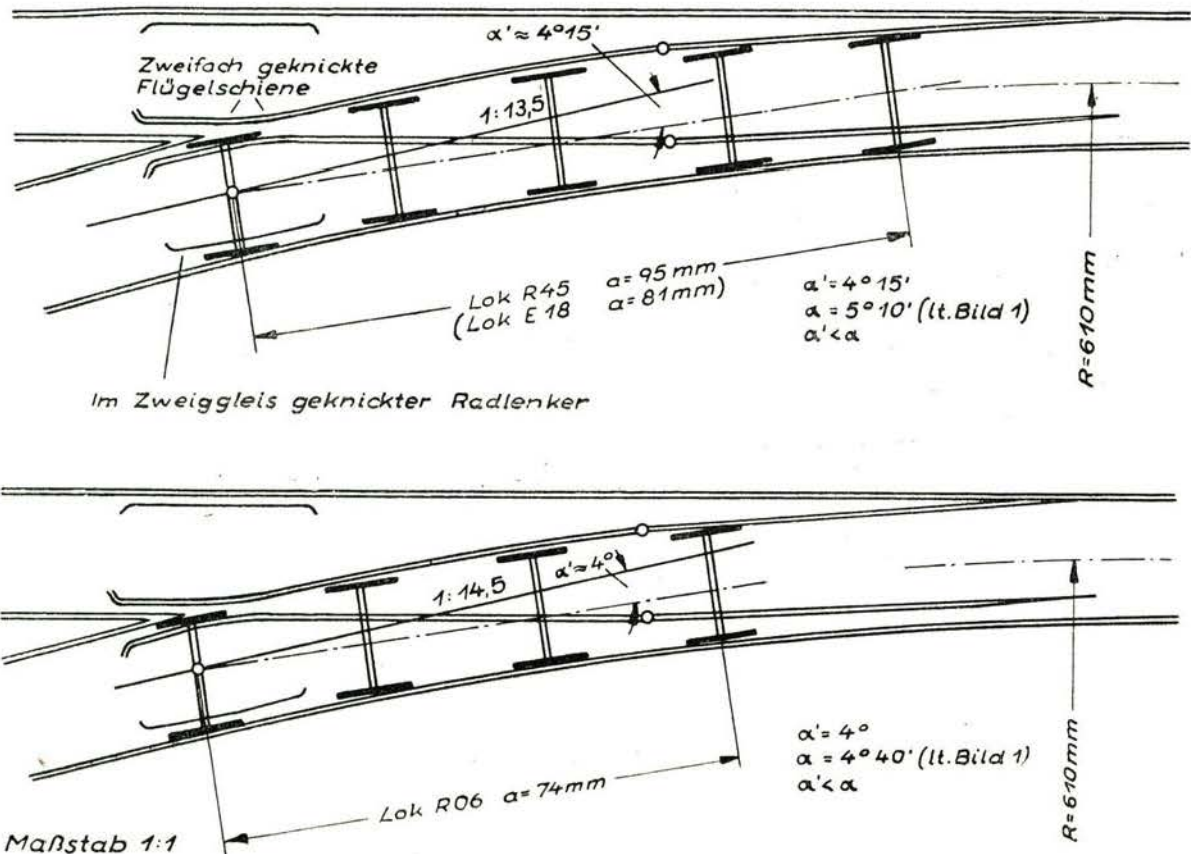 α' ≈ 4°15'
Zweifach geknickte
Flügelschiene
1:13,5
Lok R45 a=95mm
(Lok E18 a=81mm)
α'=4°15'
α=5°10' (lt.Bild 1)
α'<α
R=610mm
Im Zweiggleis geknickter Radlenker
1:14,5
α'≈4°
α'=4°
α=4°40' (lt.Bild 1)
α'<α
R=610mm
Lok R06 a=74mm
Maßstab 1:1